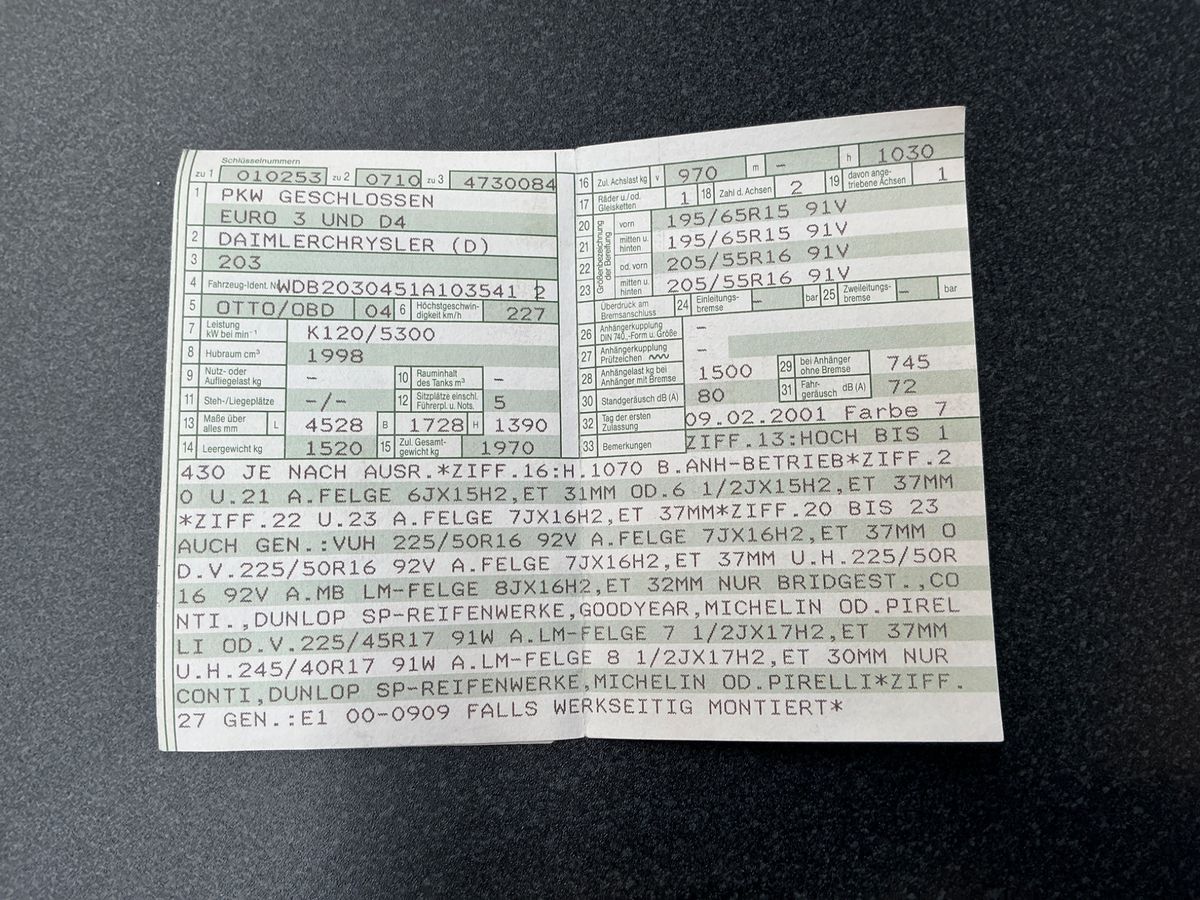 Schlüsselnummern
zu 1 010253 zu 2 0710 zu 3 4730084
1 PKW GESCHLOSSEN
EURO 3 UND D4
2 DAIMLERCHRYSLER (D)
3 203
4 Fahrzeug-Ident. Nr. WDB2030451A103541 2
5 OTTO/OBD 04 6 Höchstgeschwin-digkeit km/h 227
7 Leistung kW bei min⁻¹ K120/5300
8 Hubraum cm³ 1998
9 Nutz- oder Aufliegelast kg – 10 Rauminhalt des Tanks m³ –
11 Steh-/Liegeplätze –/– 12 Sitzplätze einschl. Führerpl. u. Nots. 5
13 Maße über alles mm L 4528 B 1728 H 1390
14 Leergewicht kg 1520 15 Zul. Gesamt-gewicht kg 1970
16 Zul. Achslast kg v 970 m – h 1030
17 Räder u./od. Gleisketten 1 18 Zahl d. Achsen 2 19 davon ange-triebene Achsen 1
Größenbezeichnung der Bereifung
20 vorn 195/65R15 91V
21 mitten u. hinten 195/65R15 91V
22 od. vorn 205/55R16 91V
23 mitten u. hinten 205/55R16 91V
Überdruck am Bremsanschluss 24 Einleitungs-bremse – bar 25 Zweileitungs-bremse – bar
26 Anhängerkupplung DIN 740.,-Form u. Größe –
27 Anhängerkupplung Prüfzeichen –
28 Anhängelast kg bei Anhänger mit Bremse 1500 29 bei Anhänger ohne Bremse 745
30 Standgeräusch dB (A) 80 31 Fahr-geräusch dB (A) 72
32 Tag der ersten Zulassung 09.02.2001 Farbe 7
33 Bemerkungen ZIFF.13:HOCH BIS 1
430 JE NACH AUSR.*ZIFF.16:H.1070 B.ANH-BETRIEB*ZIFF.2
0 U.21 A.FELGE 6JX15H2,ET 31MM OD.6 1/2JX15H2,ET 37MM
*ZIFF.22 U.23 A.FELGE 7JX16H2,ET 37MM*ZIFF.20 BIS 23
AUCH GEN.:VUH 225/50R16 92V A.FELGE 7JX16H2,ET 37MM O
D.V.225/50R16 92V A.FELGE 7JX16H2,ET 37MM U.H.225/50R
16 92V A.MB LM-FELGE 8JX16H2,ET 32MM NUR BRIDGEST.,CO
NTI.,DUNLOP SP-REIFENWERKE,GOODYEAR,MICHELIN OD.PIREL
LI OD.V.225/45R17 91W A.LM-FELGE 7 1/2JX17H2,ET 37MM
U.H.245/40R17 91W A.LM-FELGE 8 1/2JX17H2,ET 30MM NUR
CONTI,DUNLOP SP-REIFENWERKE,MICHELIN OD.PIRELLI*ZIFF.
27 GEN.:E1 00-0909 FALLS WERKSEITIG MONTIERT*